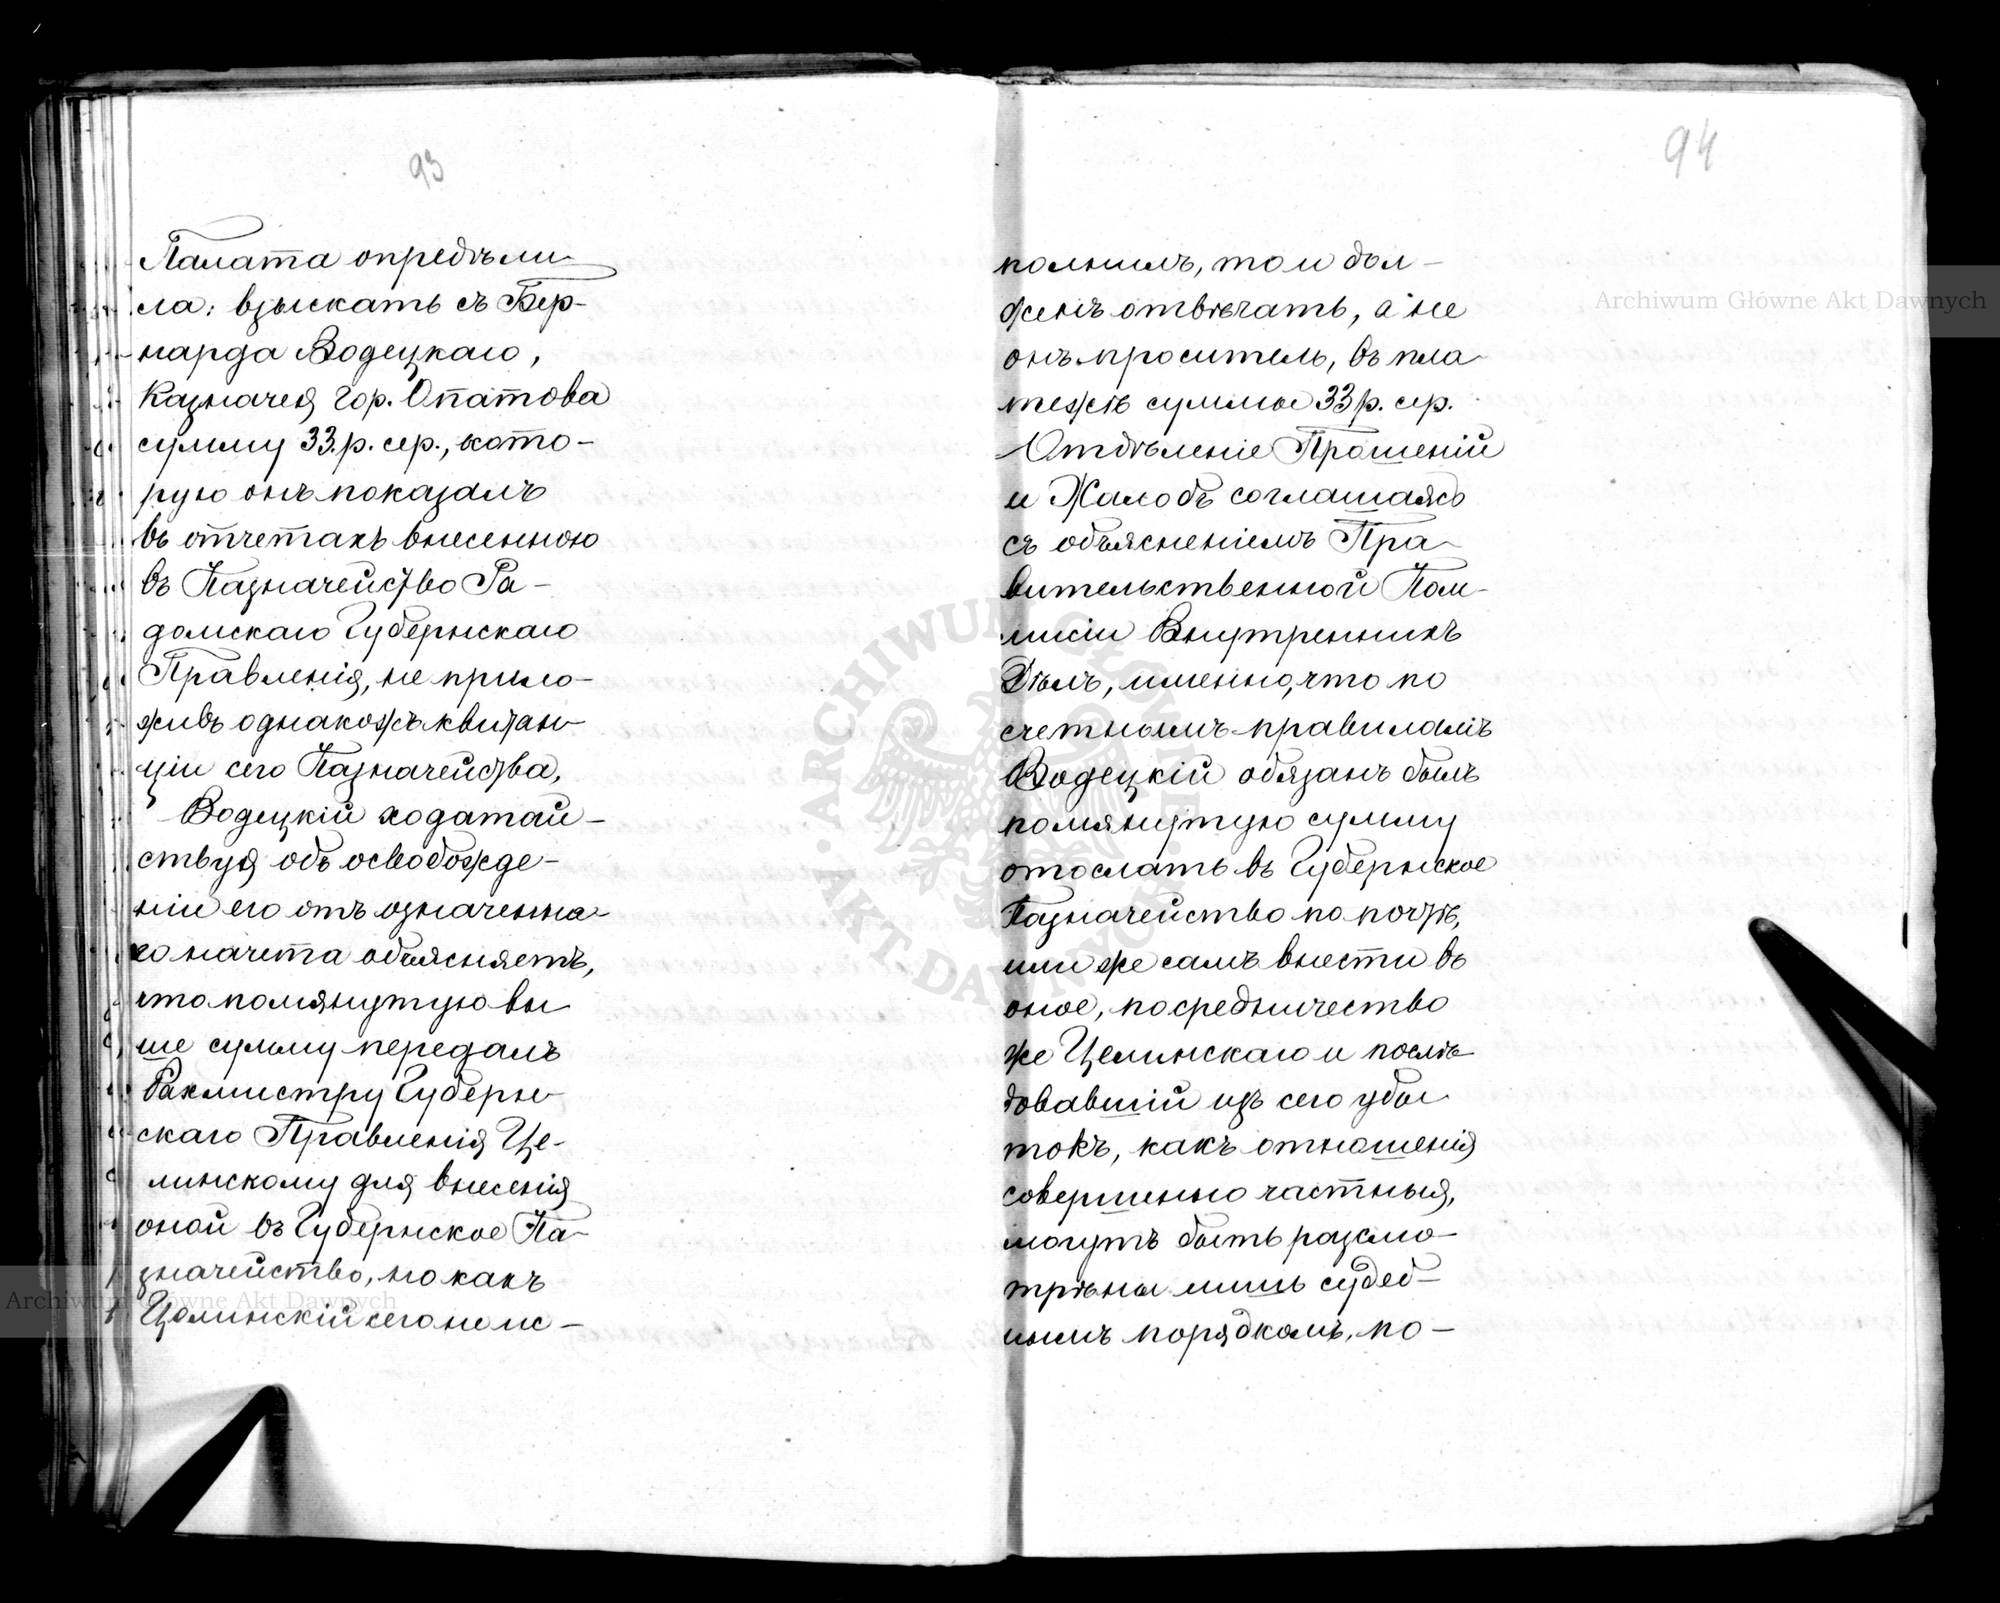 93
Палата опредѣли-
ла: взыскать съ Бер-
нарда Водецкаго,
Казначея гор. Опатова
сумму 33. р. сер., кото-
рую онъ показалъ
въ отчетахъ внесенною
въ Казначейство Ра-
домскаго Губернскаго
Правленія, не прило-
живъ однакожъ квитан-
ціи сего Казначейства.
Водецкій ходатай-
ствуя объ освобожде-
ніи его отъ означенна-
го начета объясняетъ,
что помянутую вы-
ше сумму передалъ
Рахмистру Губерн-
скаго Правленія Це-
линскому для внесенія
оной въ Губернское Ка-
значейство, но какъ
Целинскій сего не ис-
94
полнилъ, то и дол-
женъ отвѣчать, а не
онъ проситель, въ пла-
тежѣ суммы 33 р. сер.
Отдѣленіе Прошеній
и Жалобъ соглашаясь
съ объясненіемъ Пра-
вительственной Ком-
мисіи Внутреннихъ
Дѣлъ, именно, что по
счетнымъ правиламъ
Водецкій обязанъ былъ
помянутую сумму
отослать въ Губернское
Казначейство по почтѣ,
или же самъ внести въ
оное, посредничество
же Целинскаго и послѣ-
довавшій изъ сего убы-
токъ, какъ отношенія
совершенно частныя,
могутъ быть разсмо-
трѣны лишь судеб-
нымъ порядкомъ, по-
Archiwum Główne Akt Dawnych
Archiwum Główne Akt Dawnych
ARCHIWUM GŁÓWNE AKT DAWNYCH